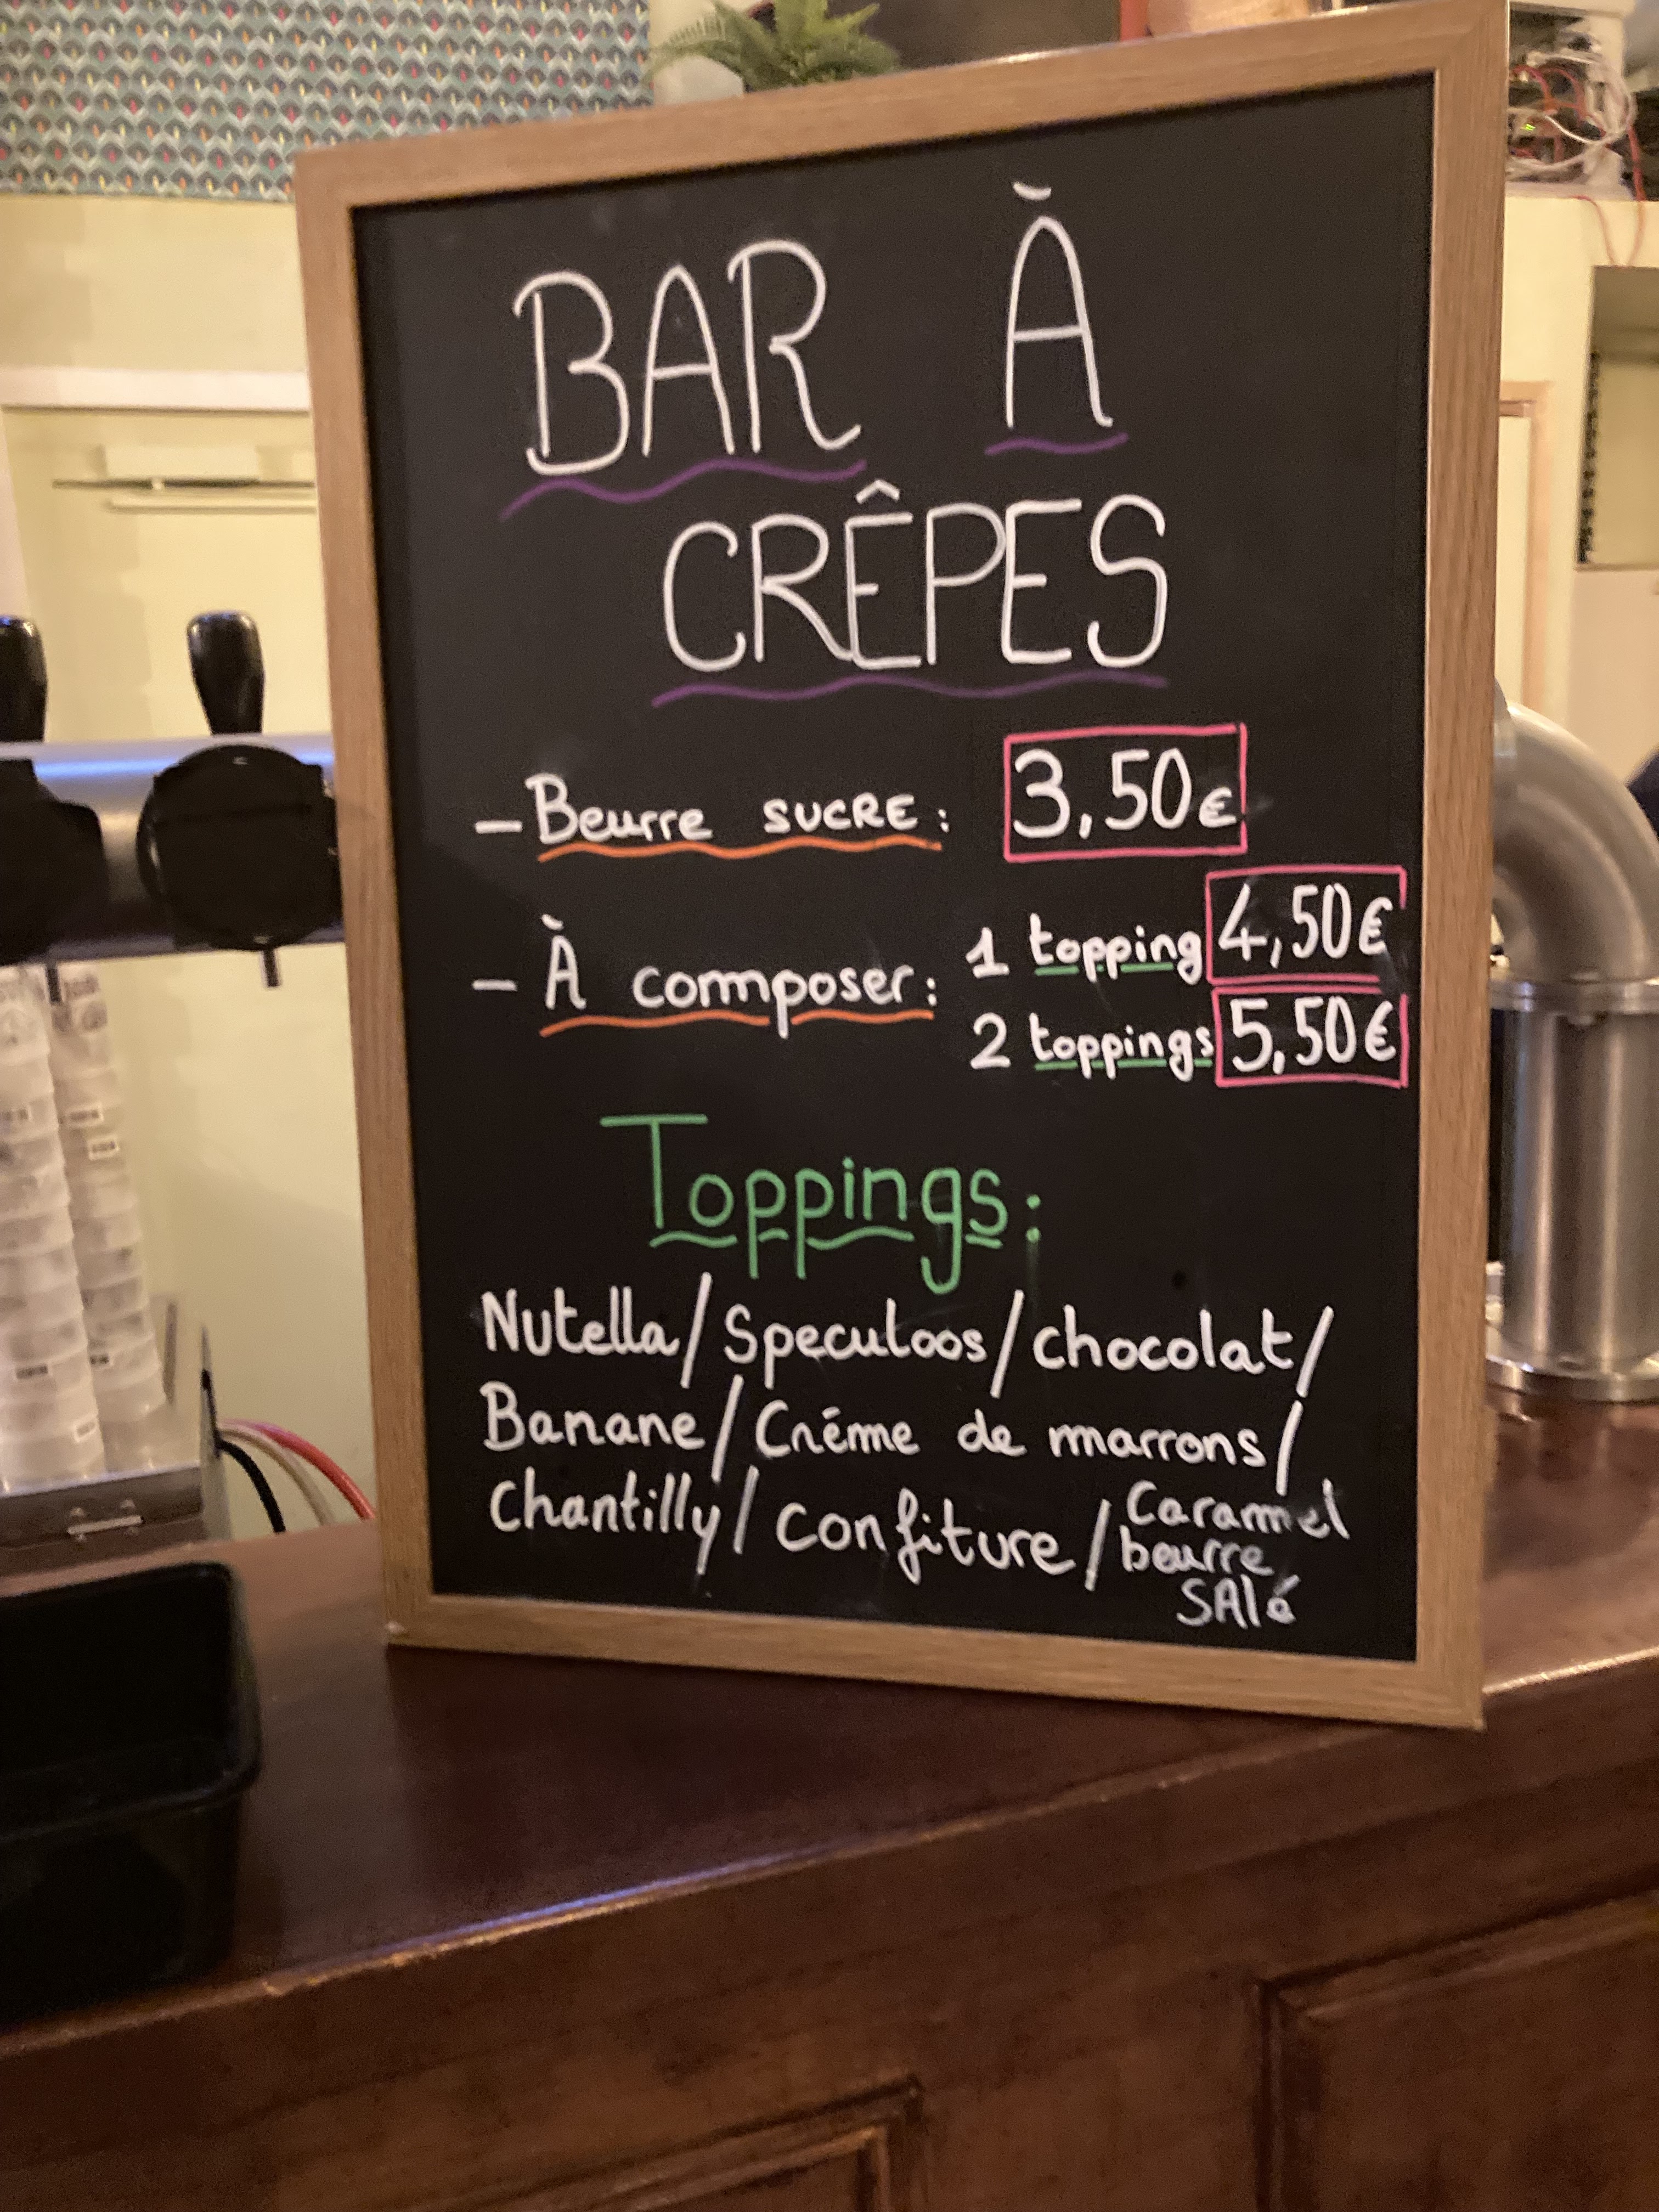 BAR À
CRÊPES
- Beurre SUCRE : 3,50€
- À composer : 1 topping 4,50€
2 toppings 5,50€
Toppings :
Nutella / Speculoos / chocolat /
Banane / Créme de marrons /
Chantilly / Confiture / Caramel
beurre
SAlé